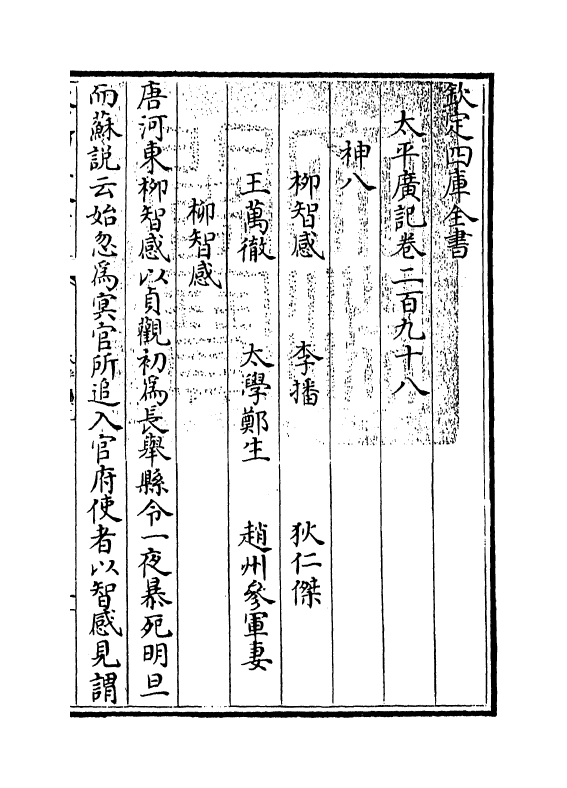 欽定四庫全書
太平廣記卷二百九十八
神八
柳智感 李播 狄仁傑
王萬徹 太學鄭生 趙州參軍妻
柳智感
唐河東柳智感以貞觀初為長舉縣令一夜暴死明旦
而蘇說云始忽為冥官所追入官府使者以智感見謂